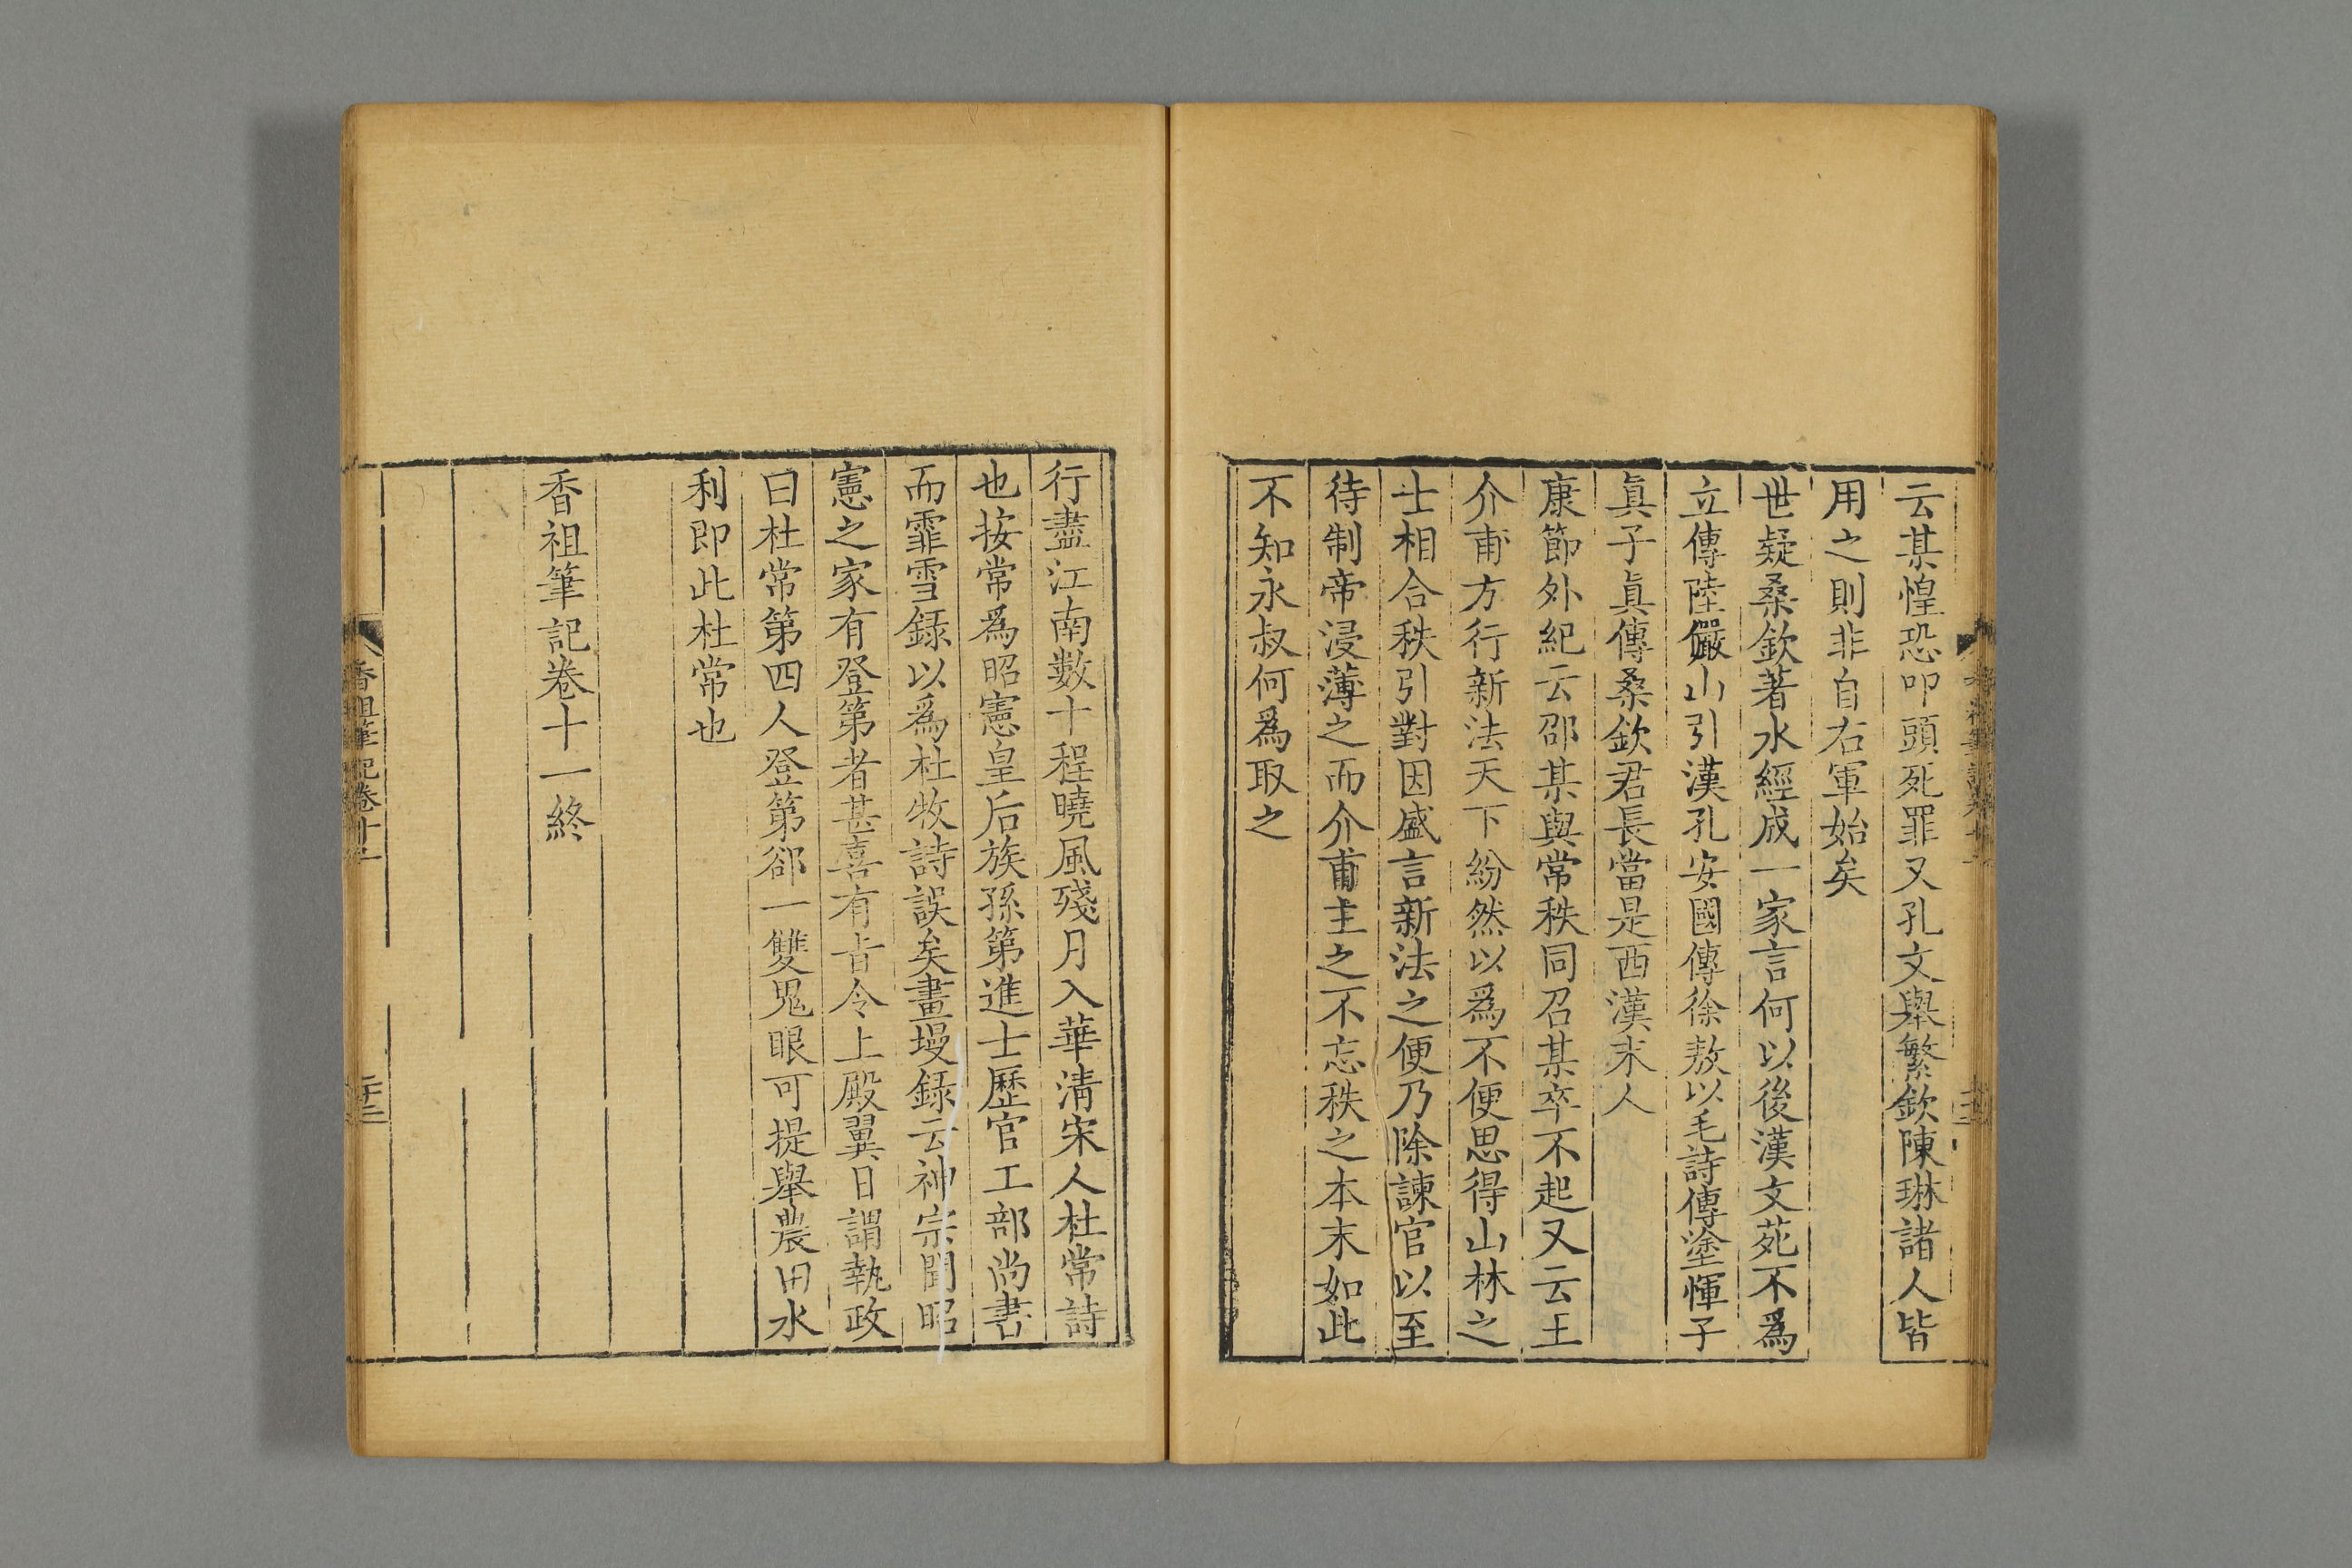 云某惶恐叩頭死罪又孔文舉繁欽陳琳諸人皆
用之則非自右軍始矣
世疑桑欽著水經成一家言何以後漢文苑不爲
立傳陸儼山引漢孔安國傳徐敖以毛詩傳塗惲子
眞子眞傳桑欽君長當是西漢末人
康節外紀云邵某與常秩同召某卒不起又云王
介甫方行新法天下紛然以爲不便思得山林之
士相合秩引對因盛言新法之便乃除諫官以至
待制帝浸薄之而介甫主之不忘秩之本末如此
不知永叔何爲取之
行盡江南數十程曉風殘月入華淸宋人杜常詩
也按常爲昭憲皇后族孫第進士歷官工部尚書
而霏雪録以爲杜牧詩誤矣畫墁録云神宗聞昭
憲之家有登第者甚喜有旨令上殿翼日謂執政
曰杜常第四人登第郤一雙鬼眼可提舉農田水
利即此杜常也
香祖筆記卷十一終
香祖筆記卷十一